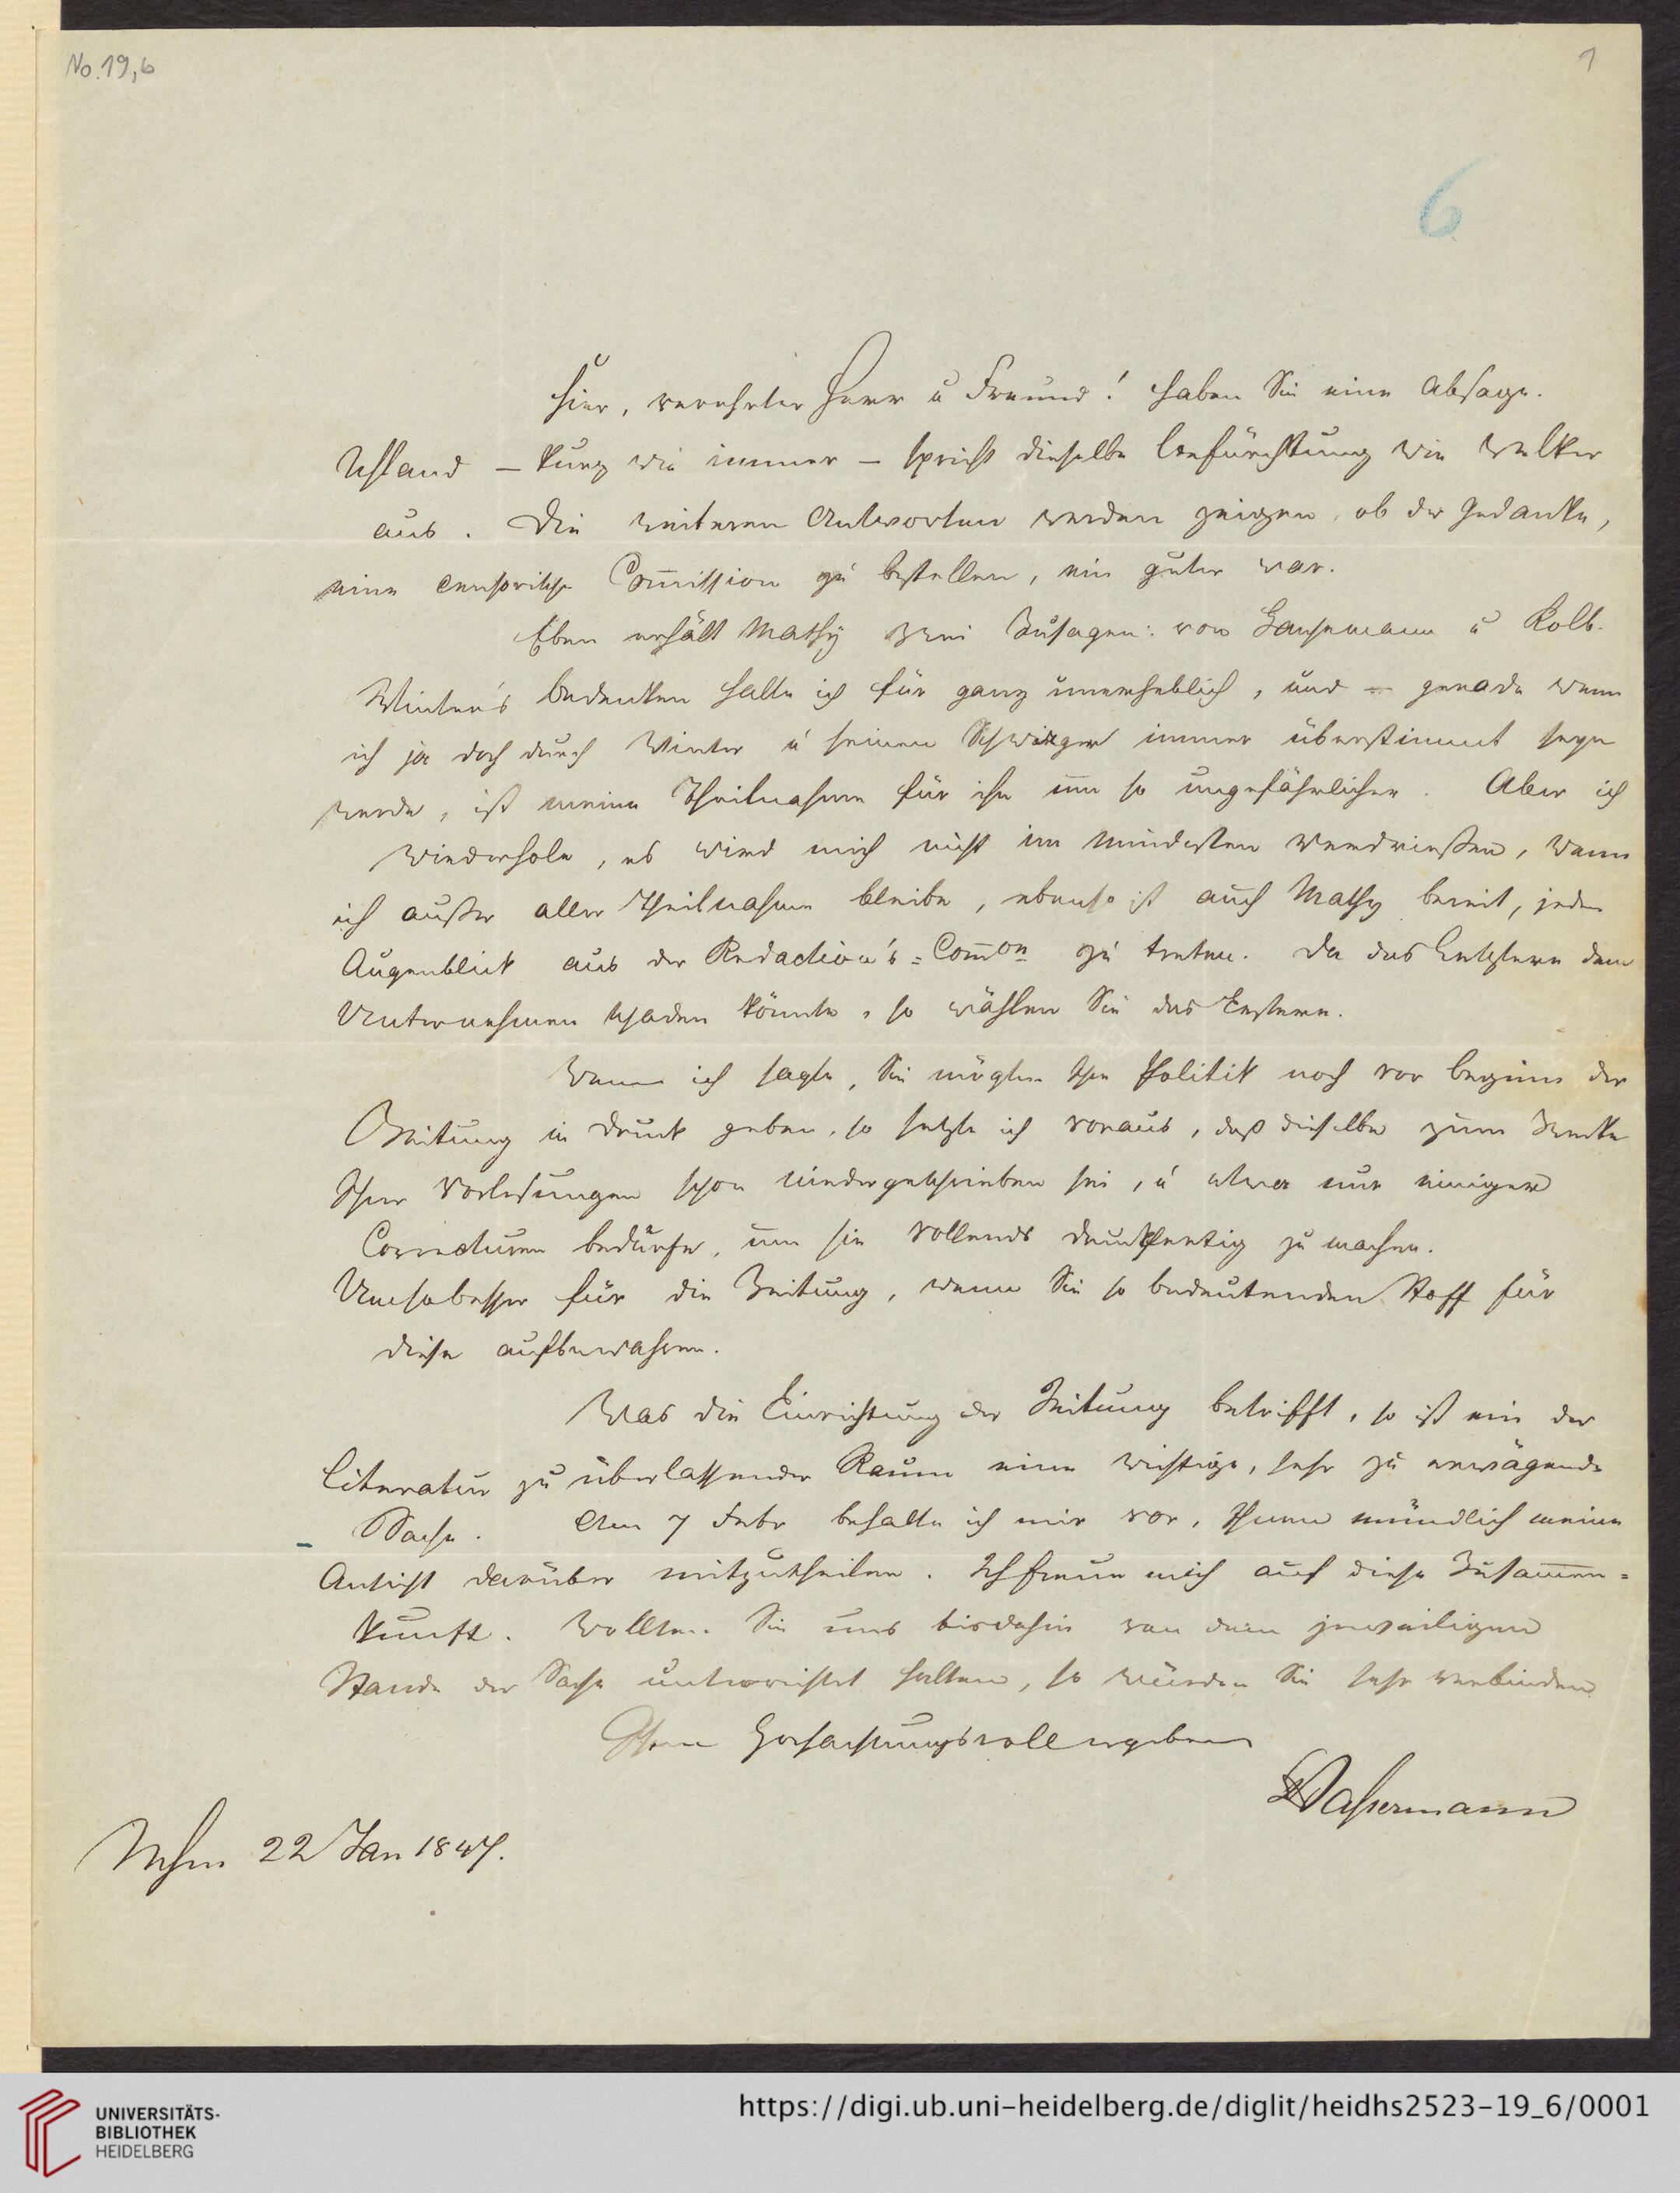 No. 19,6
1
6
Hier, verehrter Herr u Freund! haben Sie eine Absage.
Uhland – kurz wie immer – spricht dieselbe Befürchtung wie Welker
aus. Die weiteren Antworten werden zeigen, ob der Gedanke,
eine censorische Com̄ission zu bestellen, ein guter war.
Eben erhält Mathy zwei Zusagen: von Hansemann u Kolb.
Winter's Bedenken halte ich für ganz unerheblich, und gerade wenn
ich ja doch durch Winter u seinen Schwager immer überstimmt seyn
werde, ist meine Theilnahme für ihn um so ungefährlicher. Aber ich
wiederhole, es wird mich nicht im Mindesten verdrießen, wenn
ich außer aller Theilnahme bleibe, ebenso ist auch Mathy bereit, jeden
Augenblick aus der Redaction's-Com̄on zu treten. Da das Letztere dem
Unternehmen schaden könnte, so wählen Sie das Erstere.
Wenn ich sagte, Sie möchten Ihre Politik noch vor Beginn der
Zeitung in Druck geben, so setzte ich voraus, daß dieselbe zum Zwecke
Ihrer Vorlesungen schon niedergeschrieben sei, u etwa nur einiger
Correcturen bedürfe, um sie vollends druckfertig zu machen.
Umsobesser für die Zeitung, wenn Sie so bedeutenden Stoff für
diese aufbewahren.
Was die Einrichtung der Zeitung betrifft, so ist ein der
Literatur zu überlassender Raum eine wichtige, sehr zu erwägende
Sache. Am 7 Febr behalte ich mir vor, Ihnen mündlich meine
Ansicht darüber mitzutheilen. Ich freue mich auf diese Zusam̄en-
kunft. Wollten Sie uns bisdahin von dem jeweiligen
Stande der Sache unterrichtet halten, so würden Sie sehr verbinden
Ihren Hochachtungsvoll ergebenen
Bassermann
Mhm 22 Jan 1847.
UNIVERSITÄTS-
BIBLIOTHEK
HEIDELBERG
https://digi.ub.uni-heidelberg.de/diglit/heidhs2523-19_6/0001